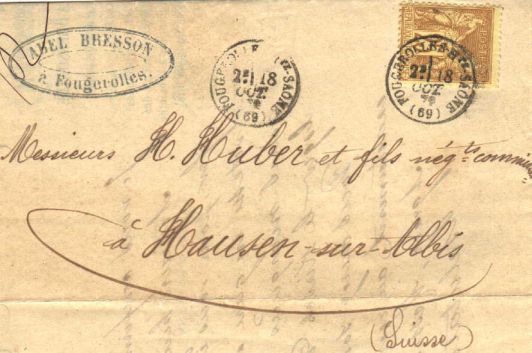 ABEL BRESSON
à Fougerolles.
FOUGEROLLES Hte-SAÔNE
2E 18
OCT.
78
(69)
FOUGEROLLES-Hte-SAÔNE
2E 18
OCT.
78
(69)
Messieurs H. Huber et fils négts
à Hausen-sur-Albis
(Suisse)